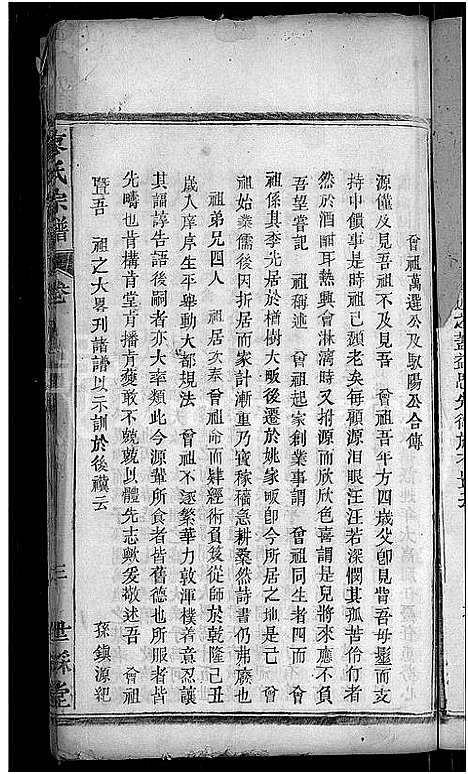 曾祖萬選公及馭陽公合傳
源僅及見吾祖不及見吾　曾祖吾年方四歲父卽見背吾母鬟而支
持中饋事是時祖已頹老矣每顧源泪眼汪汪若深憫其孤苦伶仃者
然於酒酣耳熱興會淋漓時又拊源而欣欣色喜謂是兒將來應不負
吾望嘗記　祖稱述　曾祖起家創業事謂　曾祖同生者四而　曾
祖係其季先居於楢樹大畈後遷於姚家畈卽今所居之地是己　曾
祖始業儒後因折居而家計漸重乃寶稼穡急耕桑然詩書仍弗廢也
祖弟兄四人　祖居次奉曾祖命而肄經術負笈從師於乾隆己丑
歲入庠序生平舉動大都規法　曾祖不逐繁華力敦渾樸着意忍讓
其諄諄告語後嗣者亦大率類此今源輩所食者皆舊德也所服者皆
先疇也肯構肯堂肯播肯獲敢不兢兢以體先志歟爰敬述吾　曾祖
暨吾　祖之大畧刊諸譜以示訓於後禩云
孫鎮源祀
氏宗譜
卷
三
世綵堂